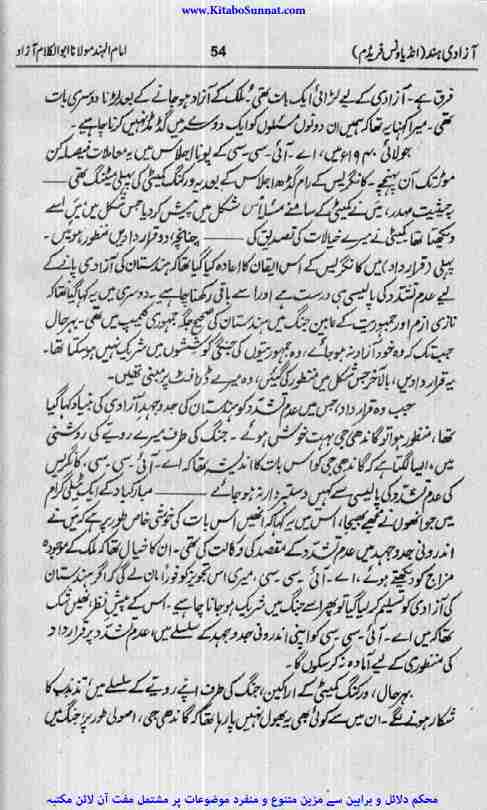 www.KitaboSunnat.com
آزادی ہند (انڈیا ونس فریڈم)
54
امام الہند مولانا ابوالکلام آزاد
فرق ہے۔ آزادی کے لیے لڑائی ایک بات تھی؛ ملک کے آزاد ہو جانے کے بعد لڑنا دوسری بات
تھی۔ میرا کہنا یہ تھا کہ ہمیں ان دونوں مسئلوں کو ایک دوسرے میں گڈمڈ نہیں کرنا چاہیے۔
جولائی ۱۹۴۰ء میں، اے۔ آئی۔ سی۔ سی کے پونا اجلاس میں یہ معاملات فیصلہ کن
موڑ تک آن پہنچے۔ کانگریس کے رام گڈھ اجلاس کے بعد یہ ورکنگ کمیٹی کی پہلی میٹنگ تھی ——
بہ حیثیت صدر، میں نے کمیٹی کے سامنے مسئلہ اس شکل میں پیش کر دیا جس شکل میں میں اسے
دیکھتا تھا۔ کمیٹی نے میرے خیالات کی تصدیق کی —— چنانچہ دو قرار دادیں منظور ہوئیں۔
پہلی (قرار داد) میں کانگریس کے اس ایقان کا اعادہ کیا گیا تھا کہ ہندستان کی آزادی پانے کے
لیے عدم تشدد کی پالیسی ہی درست ہے اور اسے باقی رکھنا چاہیے۔ دوسری میں یہ کہا گیا تھا کہ
نازی ازم اور جمہوریت کے مابین جنگ میں ہندستان کی صحیح جگہ جمہوری کیمپ میں تھی۔ بہرحال
جب تک کہ وہ خود آزاد نہ ہو جائے، وہ جمہوریتوں کی جنگی کوششوں میں شریک نہیں ہو سکتا تھا۔
یہ قرار دادیں، بالآخر جس شکل میں منظور کی گئیں، وہ میرے ڈرافٹ پر مبنی تھیں۔
جب وہ قرار داد، جس میں عدم تشدد کو ہندستان کی جدوجہد آزادی کی بنیاد کہا گیا
تھا، منظور ہوا تو گاندھی جی بہت خوش ہوئے۔ جنگ کی طرف میرے رویے کی روشنی
میں، ایسا لگتا ہے کہ گاندھی جی کو اس بات کا اندیشہ تھا کہ اے۔ آئی۔ سی۔ سی، کانگریس
کی عدم تشدد کی پالیسی سے کہیں دستبردار نہ ہو جائے —— مبارکباد کے ایک ٹیلی گرام
میں جو انھوں نے مجھے بھیجا، اس میں یہ کہا کہ انھیں اس بات کی خوشی خاص طور پر ہے کہ میں نے
اندرونی جدوجہد میں عدم تشدد کے مقصد کی وکالت کی تھی۔ ان کا خیال تھا کہ ملک کے موجودہ
مزاج کو دیکھتے ہوئے، اے۔ آئی۔ سی۔ سی، میری اس تجویز کو فوراً مان لے گی کہ اگر ہندستان
کی آزادی کو تسلیم کر لیا گیا تو پھر اسے جنگ میں شریک ہو جانا چاہیے۔ اس کے پیش نظر انھیں شک
تھا کہ میں اے۔ آئی۔ سی۔ سی کو اپنی اندرونی جدوجہد کے سلسلے میں، عدم تشدد پر قرار داد
کی منظوری کے لیے آمادہ نہ کر سکوں گا۔
بہرحال، ورکنگ کمیٹی کے اراکین، جنگ کی طرف اپنے رویے کے سلسلے میں تذبذب کا
شکار ہونے لگے۔ ان میں سے کوئی بھی یہ بھول نہیں پا رہا تھا کہ گاندھی جی، اصولی طور پر جنگ میں
محکم دلائل و براہین سے مزین متنوع و منفرد موضوعات پر مشتمل مفت آن لائن مکتبہ